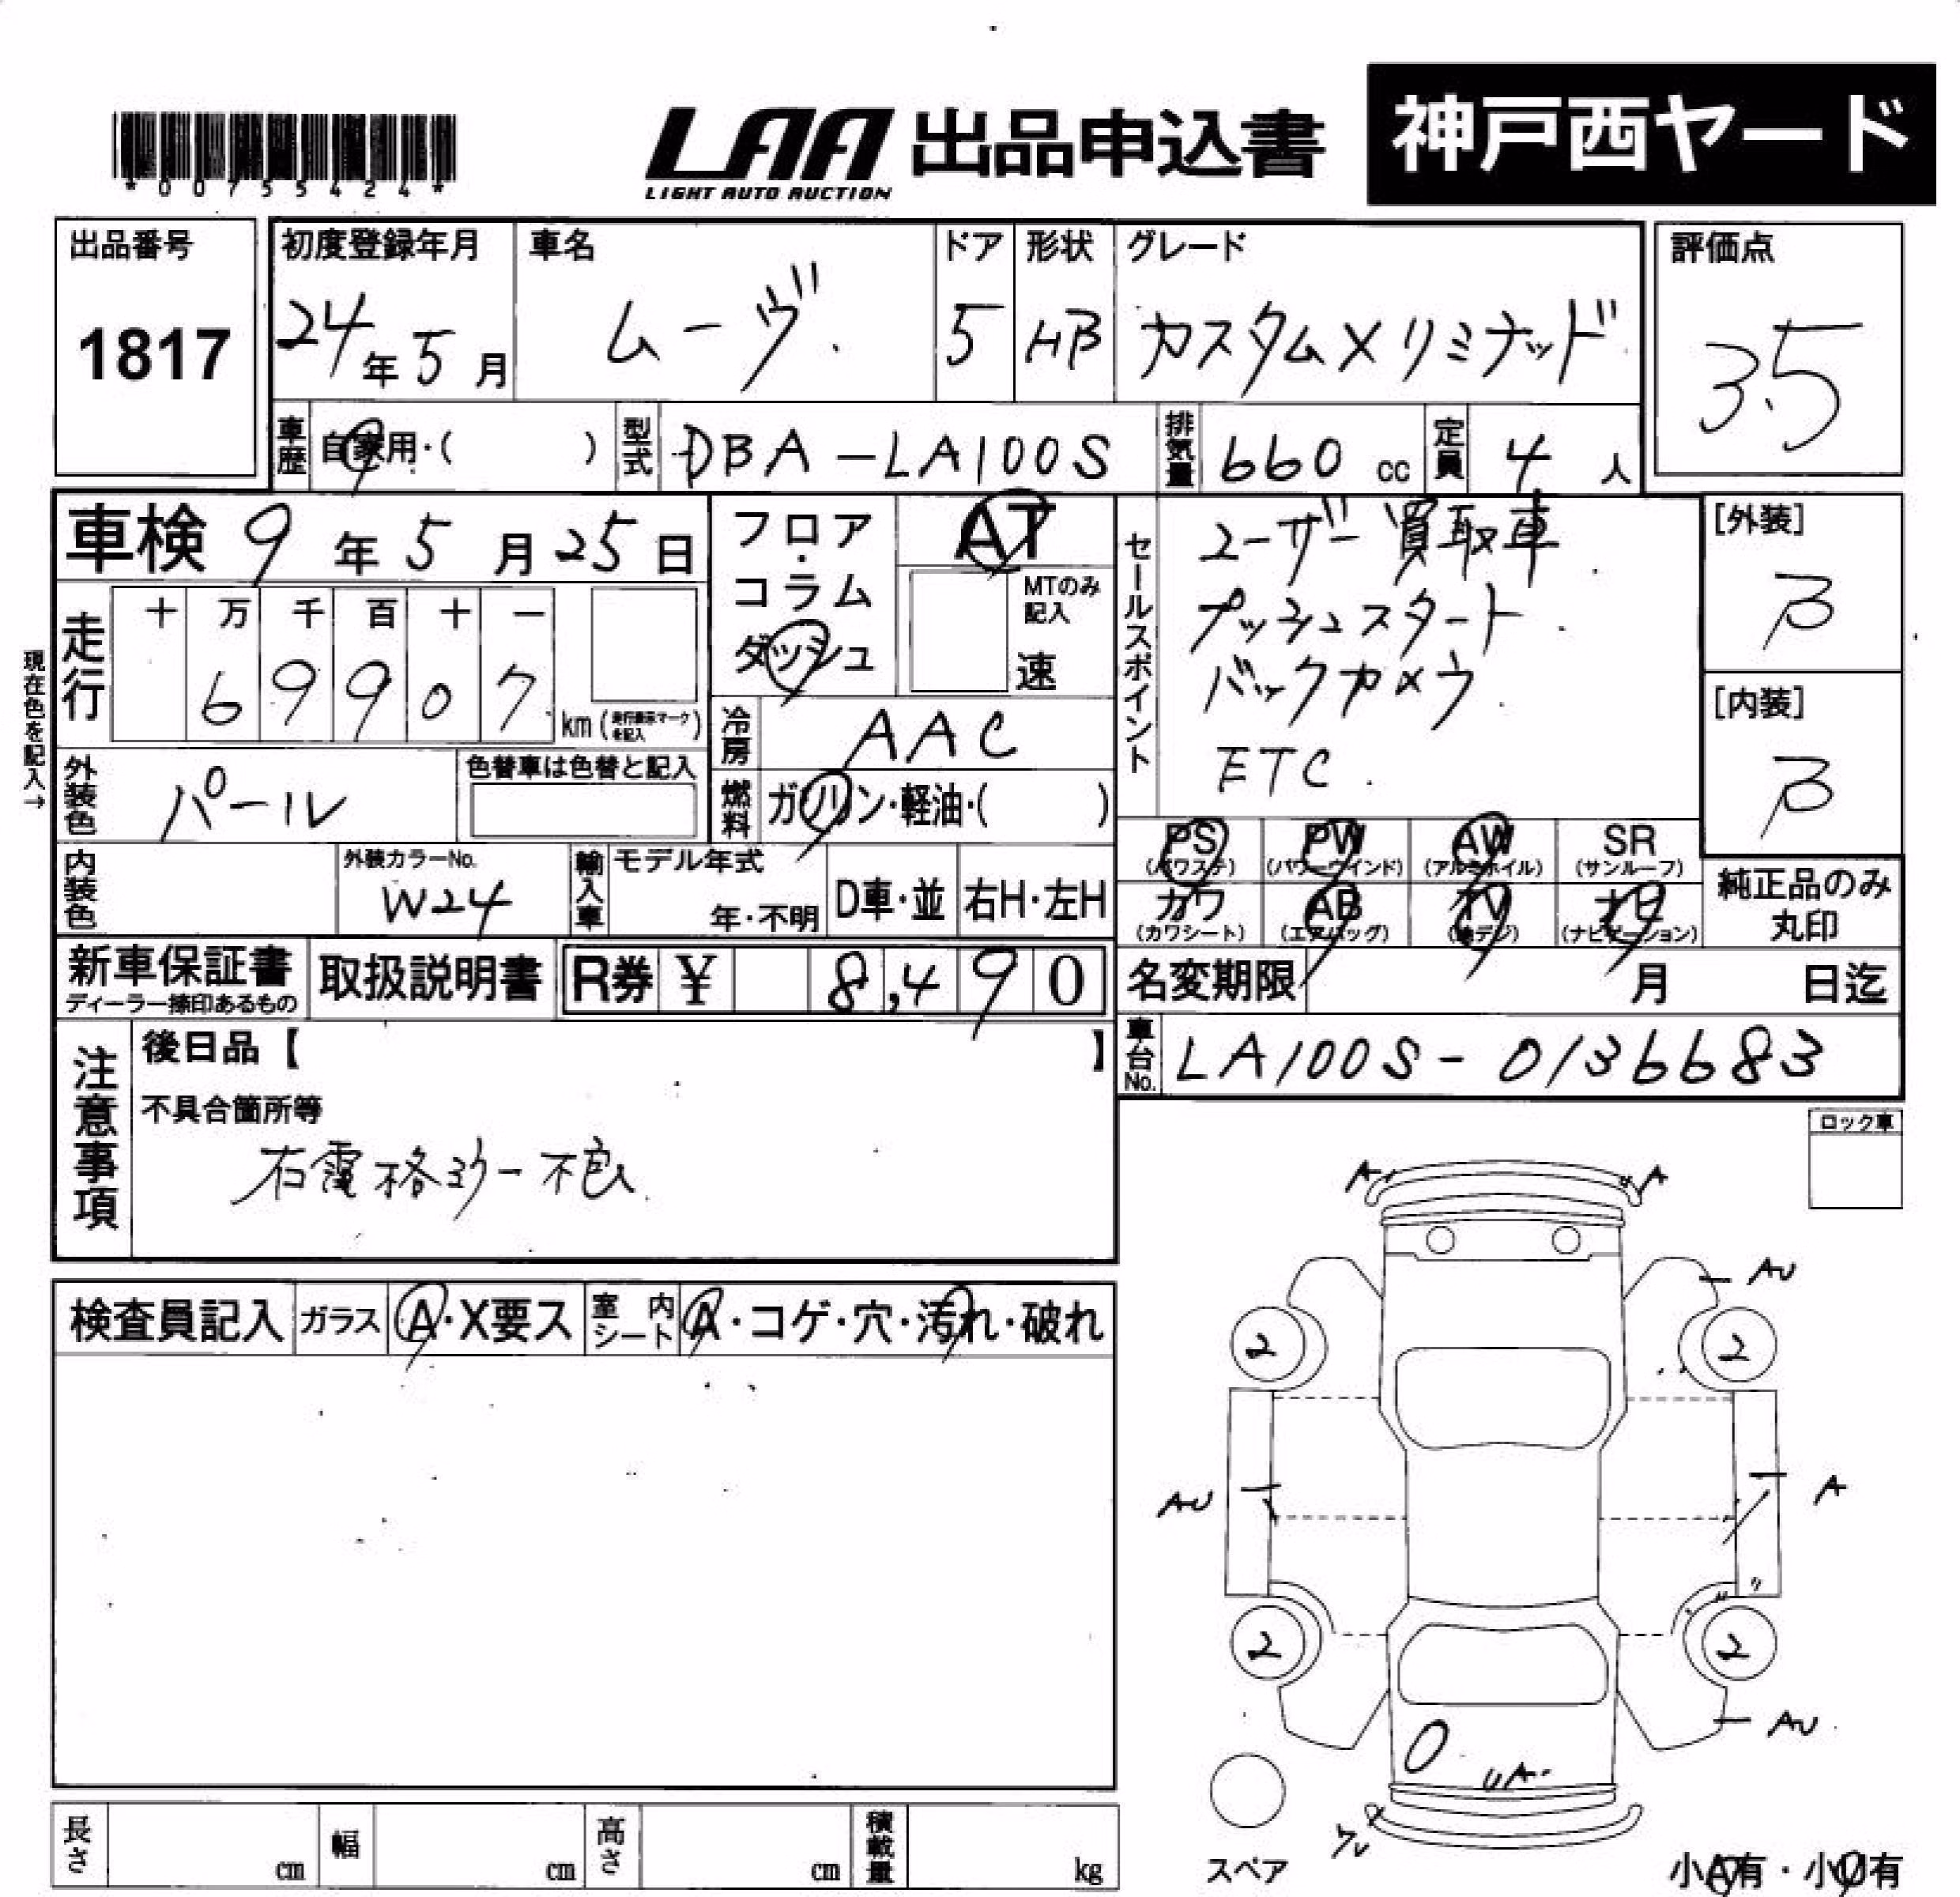 *00755424*
LAA 出品申込書 神戸西ヤード
LIGHT AUTO AUCTION
出品番号
1817
初度登録年月
24年5月
車名
ムーヴ
ドア
5
形状
HB
グレード
カスタムXリミテッド
評価点
3.5
車歴 自家用・( )
型式 DBA-LA100S
排気量 660 cc
定員 4人
車検 9年5月25日
現在色を記入→
走行
十 万 千 百 十 一
6 9 9 0 7
km(走行表示マークを記入)
フロア・コラム
ダッシュ
AT
MTのみ記入
速
冷房 AAC
燃料 ガソリン・軽油・( )
セールスポイント
ユーザー買取車
プッシュスタート
バックカメラ
ETC
[外装]
B
[内装]
B
外装色 パール
色替車は色替と記入
内装色
外装カラーNo.
W24
輸入車
モデル年式
年・不明
D車・並
右H・左H
PS (パワステ)
PW (パワーウィンド)
AW (アルミホイル)
SR (サンルーフ)
カワ (カワシート)
AB (エアバッグ)
TV (地デジ)
ナビ (ナビゲーション)
純正品のみ
丸印
新車保証書
ディーラー捺印あるもの
取扱説明書
R券 ¥ 8,490
名変期限 月 日迄
車台No. LA100S-0136683
注意事項
後日品【 】
不具合箇所等
右電格ミラー不良
ロック車
検査員記入
ガラス A・X要ス
室内シート A・コゲ・穴・汚れ・破れ
A A
AU
2 2
AU A
2 2
AU
A
スペア
小A有・小U有
長さ cm
幅 cm
高さ cm
積載量 kg